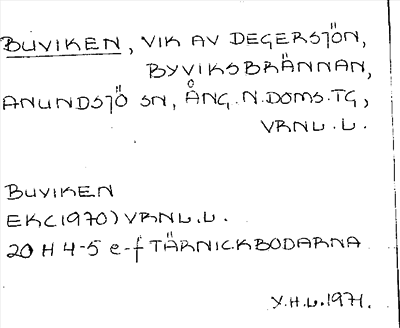 BUVIKEN, VIK AV DEGERSJÖN,
BYVIKSBRÄNNAN,
ANUNDSJÖ SN, ÅNG.N.DOMS.TG,
VRNL.L.
BUVIKEN
EKC(1970) VRNL.L.
20 H 4-5 e-f TÄRNICKBODARNA
Y.H.L.1971.